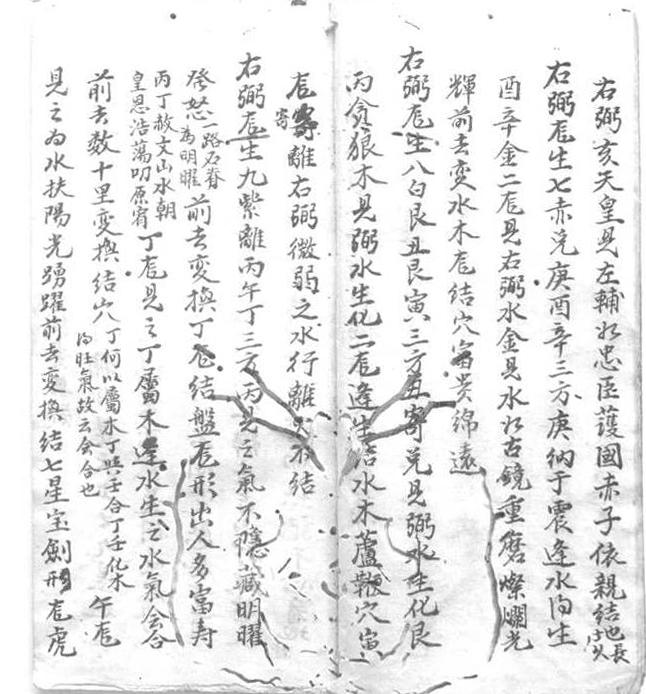 右弼亥天皇見左輔如忠臣護國赤子依親結也長
右弼龙生七赤兌庚酉辛三方庚納于震逢水向生
酉辛金二龙見右弼水金見水如古鏡重磨燦爛光
輝前去变水木龙結穴富贵綿遠
右弼龙生八白艮丑艮寅三方丑寄兌見弼水生化艮
丙貪狼木見弼水生化二龙逢生結水木蘆鞭穴寅
龙寄離右弼微弱之水行離不結
寄
右弼龙生九紫離丙午丁三方丙見之氣不隱藏明曜
發怒一路石脊為明曜前去变換丁龙結盤龙形出人多富寿
丙丁赦文山水朝皇恩浩蕩叨原宥丁龙見之丁屬木逢水生之水氣会合
前去数十里变換結穴丁何以屬木丁與壬合丁壬化木為旺氣故云会合也午龙
見之為水扶陽光踴躍前去变換結七星宝劍形龙虎